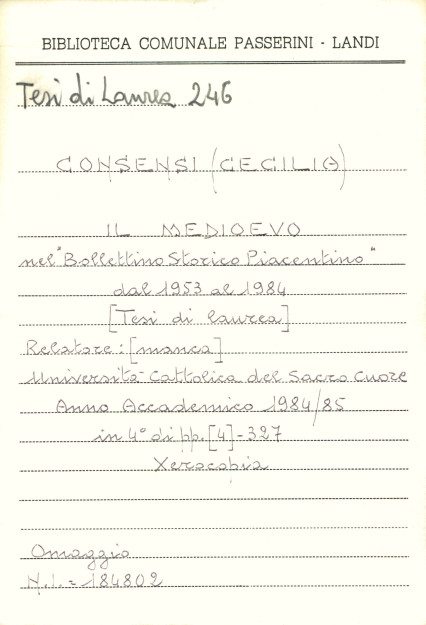 BIBLIOTECA COMUNALE PASSERINI - LANDI
Tesi di Laurea 246
CONSENSI (CECILIA)
IL MEDIOEVO
nel "Bollettino Storico Piacentino"
dal 1953 al 1984
[Tesi di laurea]
Relatore: [manca]
Università Cattolica del Sacro Cuore
Anno Accademico 1984/85
in 4° di pp. [4]-327
Xerocopia
Omaggio
N.I. = 184802